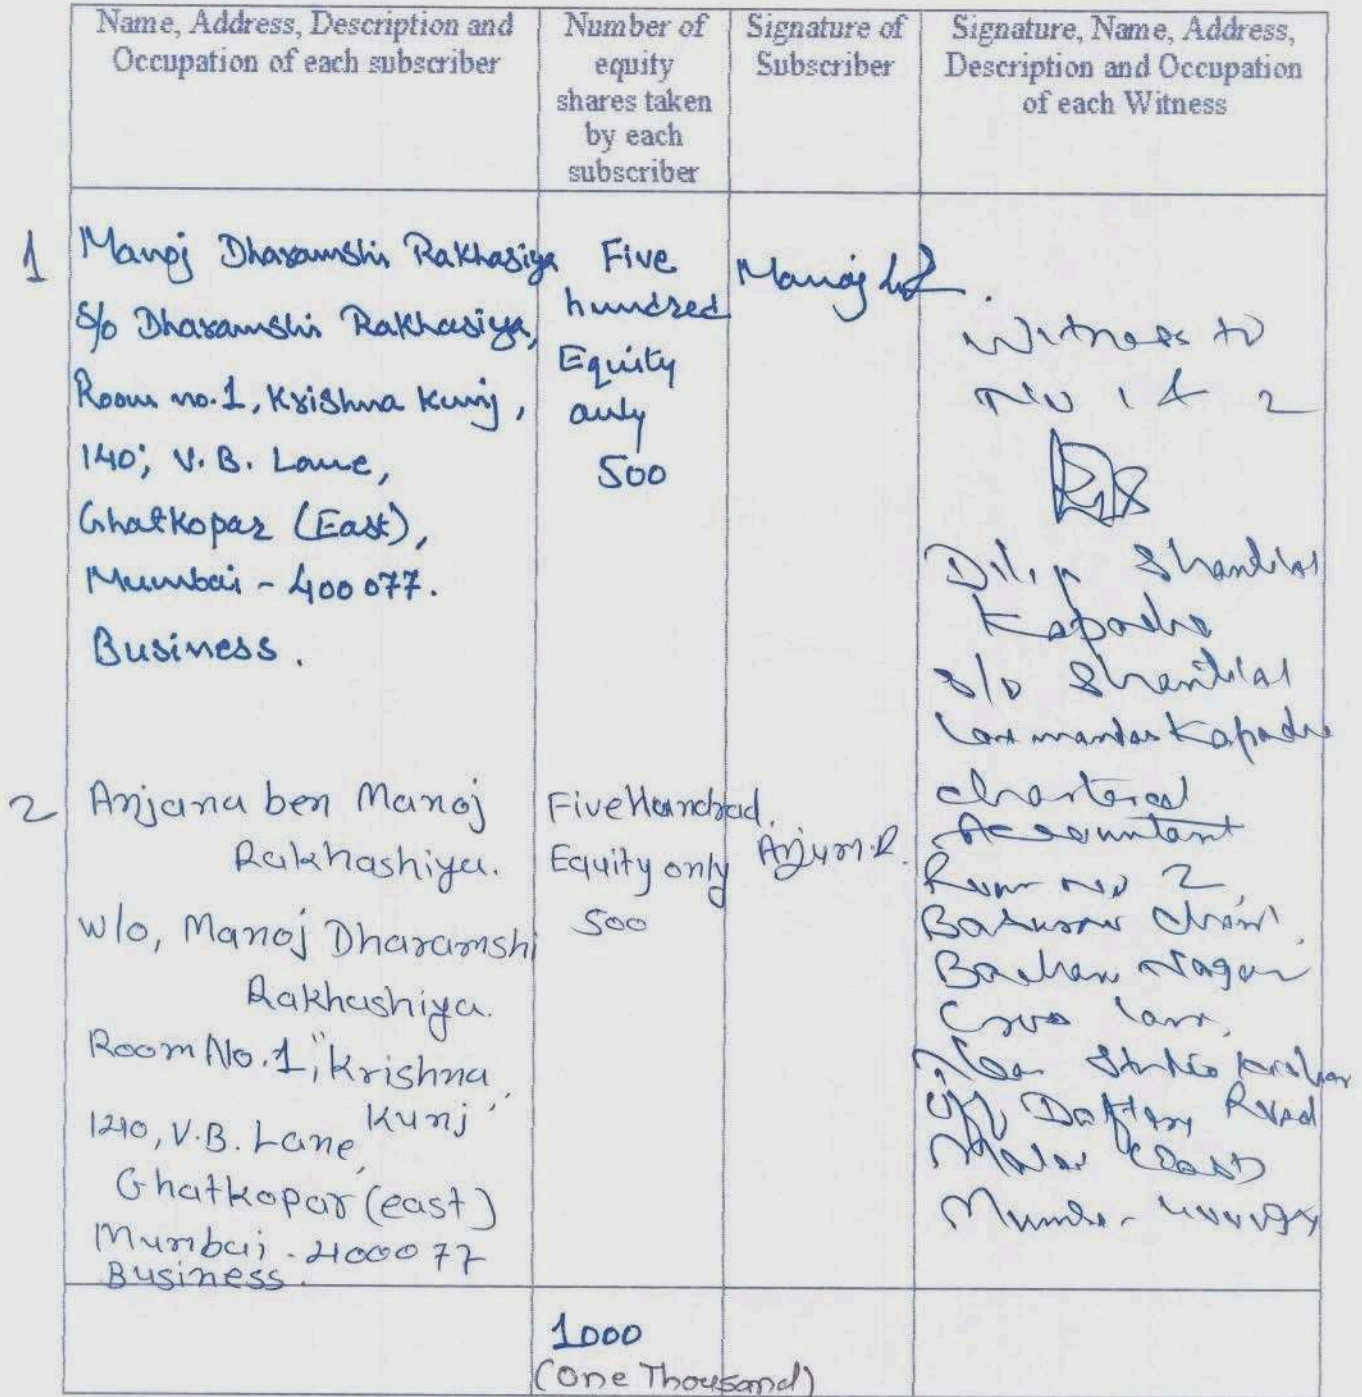 Name, Address, Description and
Occupation of each subscriber
Number of
equity
shares taken
by each
subscriber
Signature of
Subscriber
Signature, Name, Address,
Description and Occupation
of each Witness
1
Manoj Dharamshi Rakhasiya
S/o Dharamshi Rakhasiya,
Room no. 1, Krishna Kunj,
140, V. B. Lane,
Ghatkopar (East),
Mumbai - 400 077.
Business.
Five
hundred
Equity
only
500
Manoj
Witness to
No 1 & 2
Dilip Shantilal
Kapadia
S/o Shantilal
Laxmandas Kapadia
Chartered
Accountant
Room No 2
Baburao Chawl,
Bachani Nagar
Cross Lane,
Near
Off Daftary Road
Malad (East)
2
Anjana ben Manoj
Rakhashiya.
w/o, Manoj Dharamshi
Rakhashiya.
Room No. 1, "Krishna
Kunj"
140, V.B. Lane,
Ghatkopar (east)
Mumbai - 400077
Business.
Five Hundred.
Equity only
500
Anjum.R.
1000
(One Thousand)